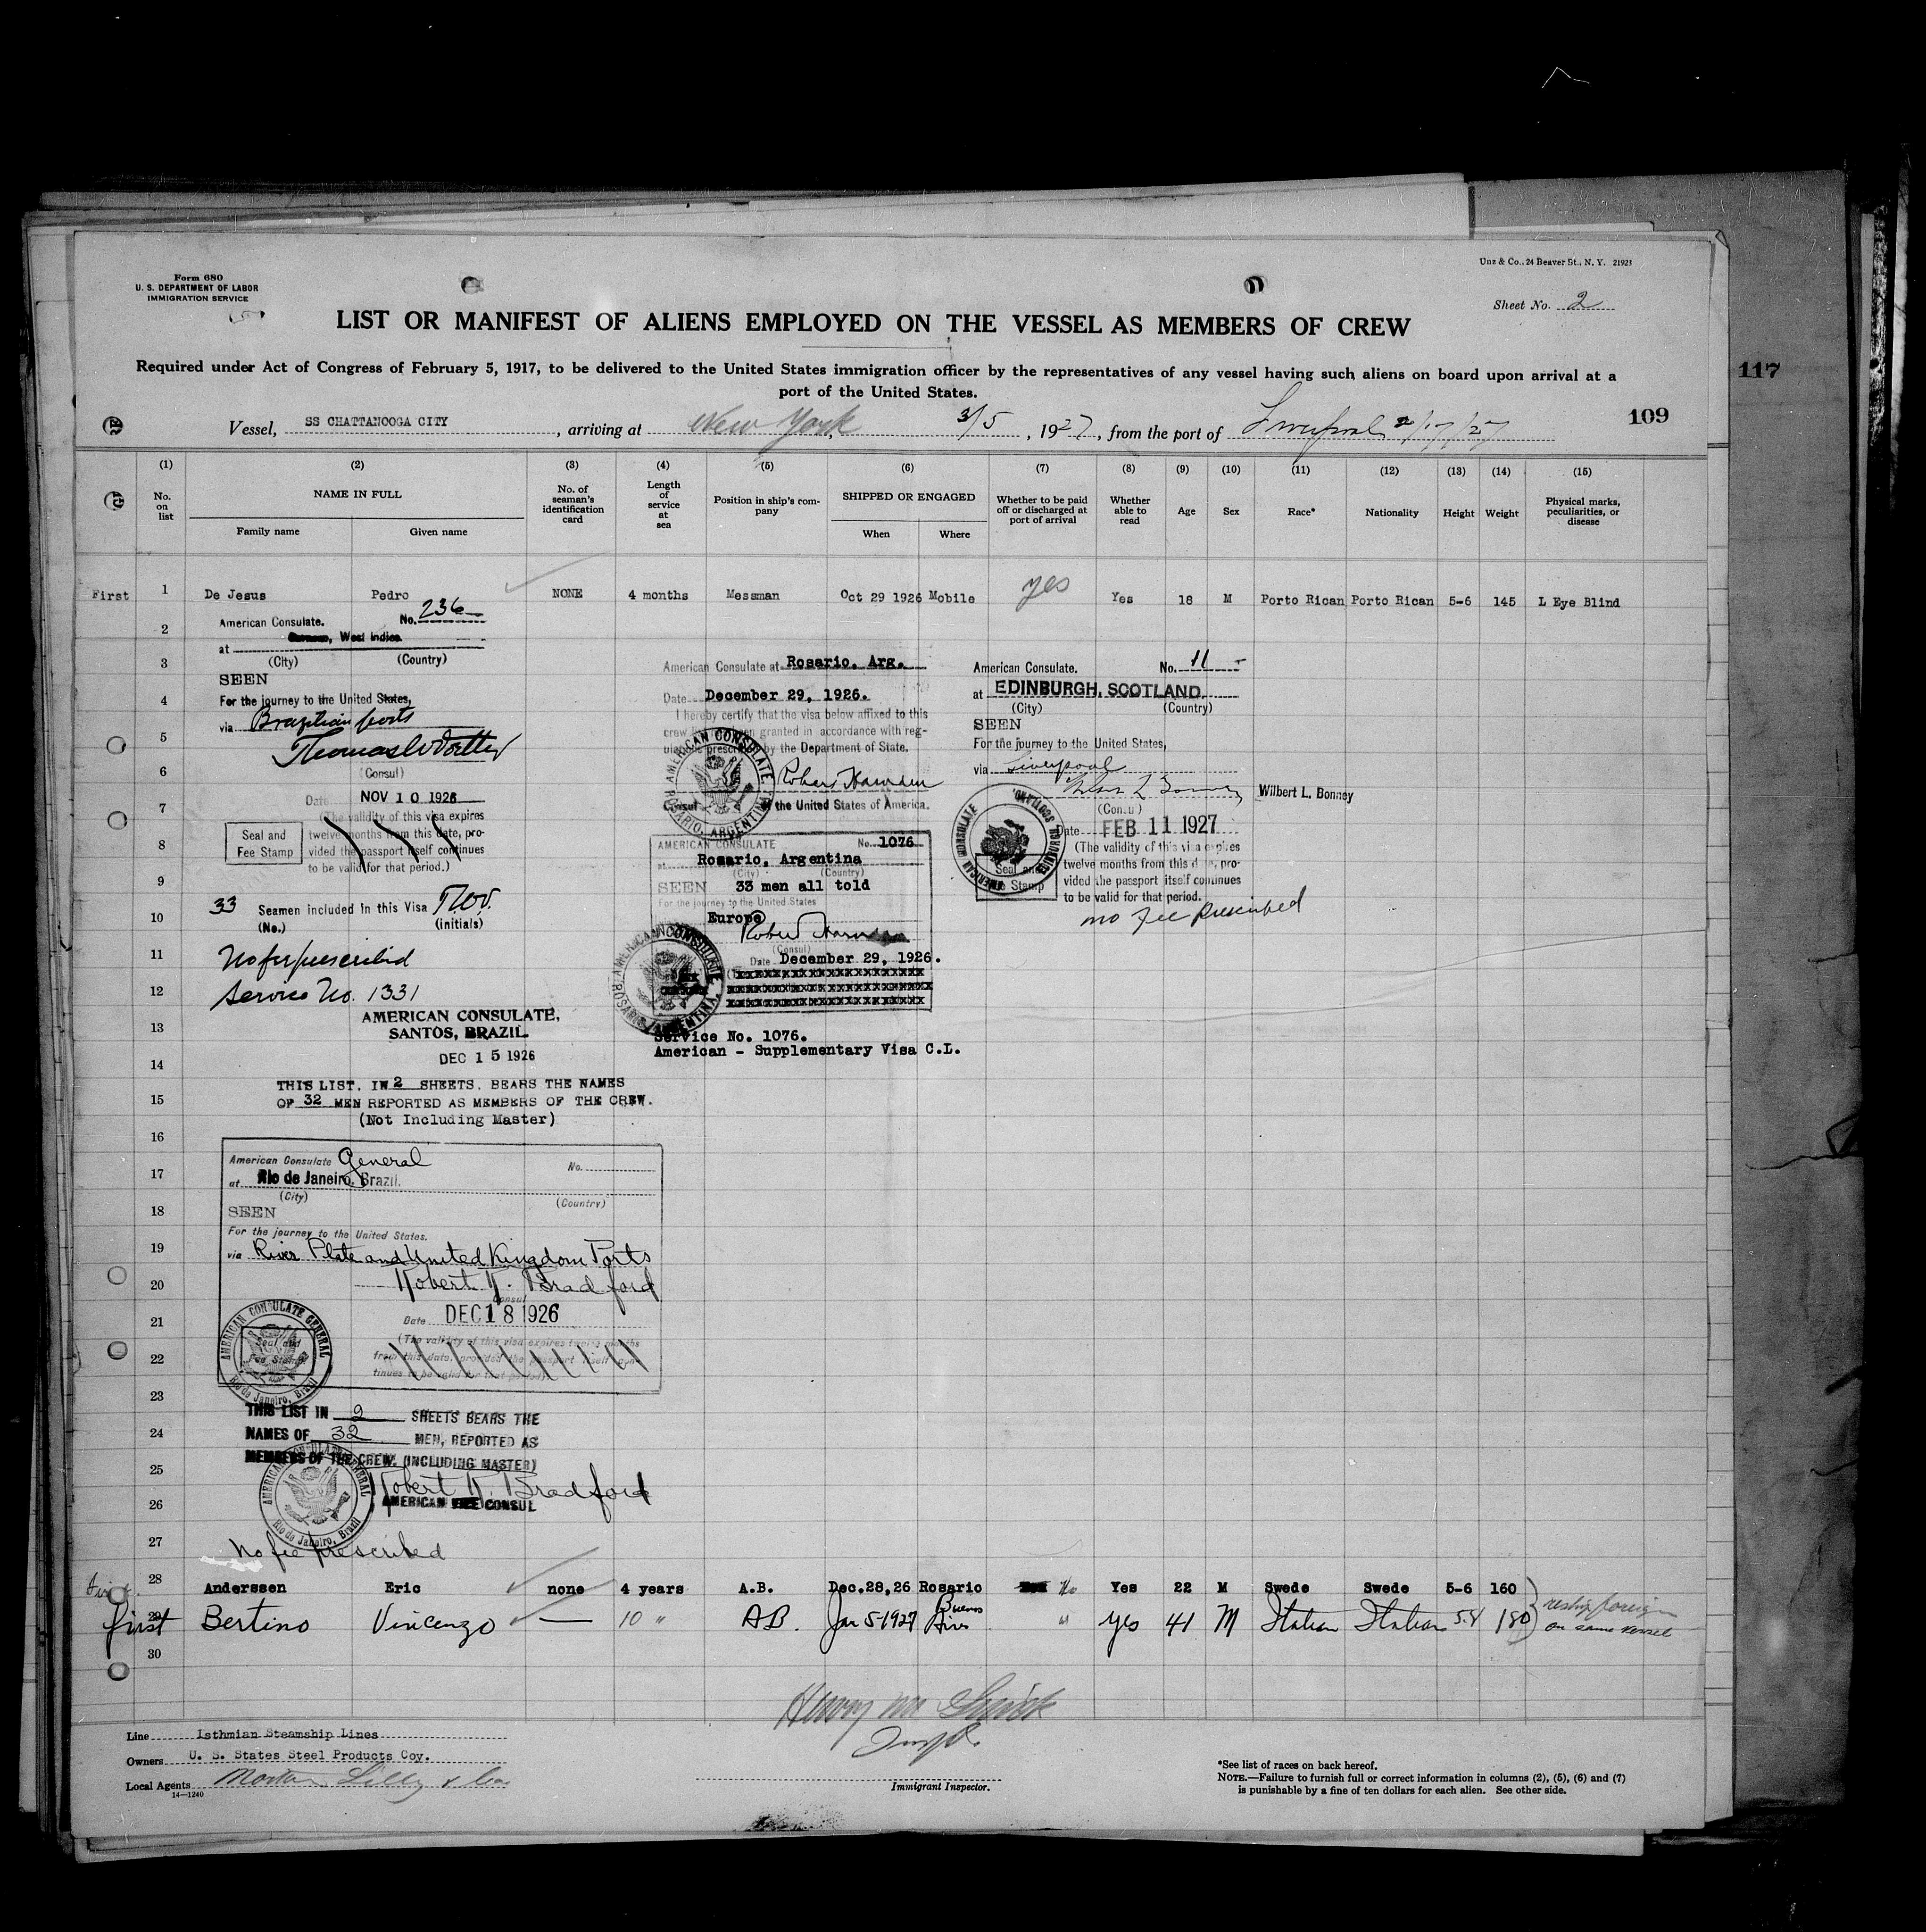 Form 680
U. S. DEPARTMENT OF LABOR
IMMIGRATION SERVICE
Unz & Co., 24 Beaver St., N. Y. 21923
Sheet No. 2
LIST OR MANIFEST OF ALIENS EMPLOYED ON THE VESSEL AS MEMBERS OF CREW
Required under Act of Congress of February 5, 1917, to be delivered to the United States immigration officer by the representatives of any vessel having such aliens on board upon arrival at a
port of the United States.
117
109
Vessel, SS CHATTANOOGA CITY, arriving at New York, 3/5, 1927, from the port of Liverpool 2/17/27
(1) (2) (3) (4) (5) (6) (7) (8) (9) (10) (11) (12) (13) (14) (15)
No. on list
NAME IN FULL
Family name Given name
No. of seaman's identification card
Length of service at sea
Position in ship's company
SHIPPED OR ENGAGED
When Where
Whether to be paid off or discharged at port of arrival
Whether able to read
Age
Sex
Race*
Nationality
Height
Weight
Physical marks, peculiarities, or disease
First 1 De Jesus Pedro NONE 4 months Messman Oct 29 1926 Mobile yes Yes 18 M Porto Rican Porto Rican 5-6 145 L Eye Blind
2
3
4
5
6
7
8
9
10
11
12
13
14
15
16
17
18
19
20
21
22
23
24
25
26
27
American Consulate. No. 236
at West Indies
(City) (Country)
SEEN
For the journey to the United States,
via Brazilian ports
(Consul)
Date NOV 10 1926
(The validity of this visa expires
twelve months from this date, pro-
vided the passport itself continues
to be valid for that period.)
Seal and
Fee Stamp
33 Seamen included in this Visa
(No.) (initials)
No fee prescribed
Service No. 1331
AMERICAN CONSULATE,
SANTOS, BRAZIL.
DEC 15 1926
THIS LIST, IN 2 SHEETS, BEARS THE NAMES
OF 32 MEN REPORTED AS MEMBERS OF THE CREW.
(Not Including Master)
American Consulate General No.
at Rio de Janeiro, Brazil.
(City) (Country)
SEEN
For the journey to the United States.
via River Plate and United Kingdom Ports
Robert K. Bradford
Consul
Date DEC 18 1926
(The validity of this visa expires twelve months
from this date, provided the passport itself con-
tinues to be valid for that period)
AMERICAN CONSULATE GENERAL
Rio de Janeiro, Brazil
Seal and
Fee Stamp
THIS LIST IN 2 SHEETS BEARS THE
NAMES OF 32 MEN, REPORTED AS
MEMBERS OF THE CREW. (INCLUDING MASTER)
Robert K. Bradford
AMERICAN VICE CONSUL
AMERICAN CONSULATE GENERAL
Rio de Janeiro, Brazil
No fee prescribed
American Consulate at Rosario. Arg.
Date December 29, 1926.
I hereby certify that the visa below affixed to this
crew list has been granted in accordance with reg-
ulations prescribed by the Department of State.
Robert Harnden
Consul of the United States of America.
AMERICAN CONSULATE
ROSARIO, ARGENTINA
AMERICAN CONSULATE No. 1076
at Rosario, Argentina
(City) (Country)
SEEN 33 men all told
For the journey to the United States
Europe
Robert Harnden
(Consul)
Date December 29, 1926.
AMERICAN CONSULATE
ROSARIO, ARGENTINA
Service No. 1076.
American - Supplementary Visa C.L.
American Consulate. No. 11
at EDINBURGH, SCOTLAND.
(City) (Country)
SEEN
For the journey to the United States,
via Liverpool
Wilbert L. Bonney
(Consul)
Date FEB 11 1927
(The validity of this visa expires
twelve months from this date, pro-
vided the passport itself continues
to be valid for that period.
AMERICAN CONSULATE
EDINBURGH, SCOTLAND.
Seal and
Fee Stamp
no fee prescribed
28 Anderssen Eric none 4 years A.B. Dec.28,26 Rosario No Yes 22 M Swede Swede 5-6 160
First 29 Bertino Vincenzo — 10 " AB. Jan 5-1927 Buenos Aires " yes 41 M Italian Italian 5.4 180
reship foreign
on same vessel
30
Line Isthmian Steamship Lines
Owners U. S. States Steel Products Coy.
Local Agents Norton Lilly & Co
14—1240
Immigrant Inspector.
*See list of races on back hereof.
NOTE.—Failure to furnish full or correct information in columns (2), (5), (6) and (7)
is punishable by a fine of ten dollars for each alien. See other side.